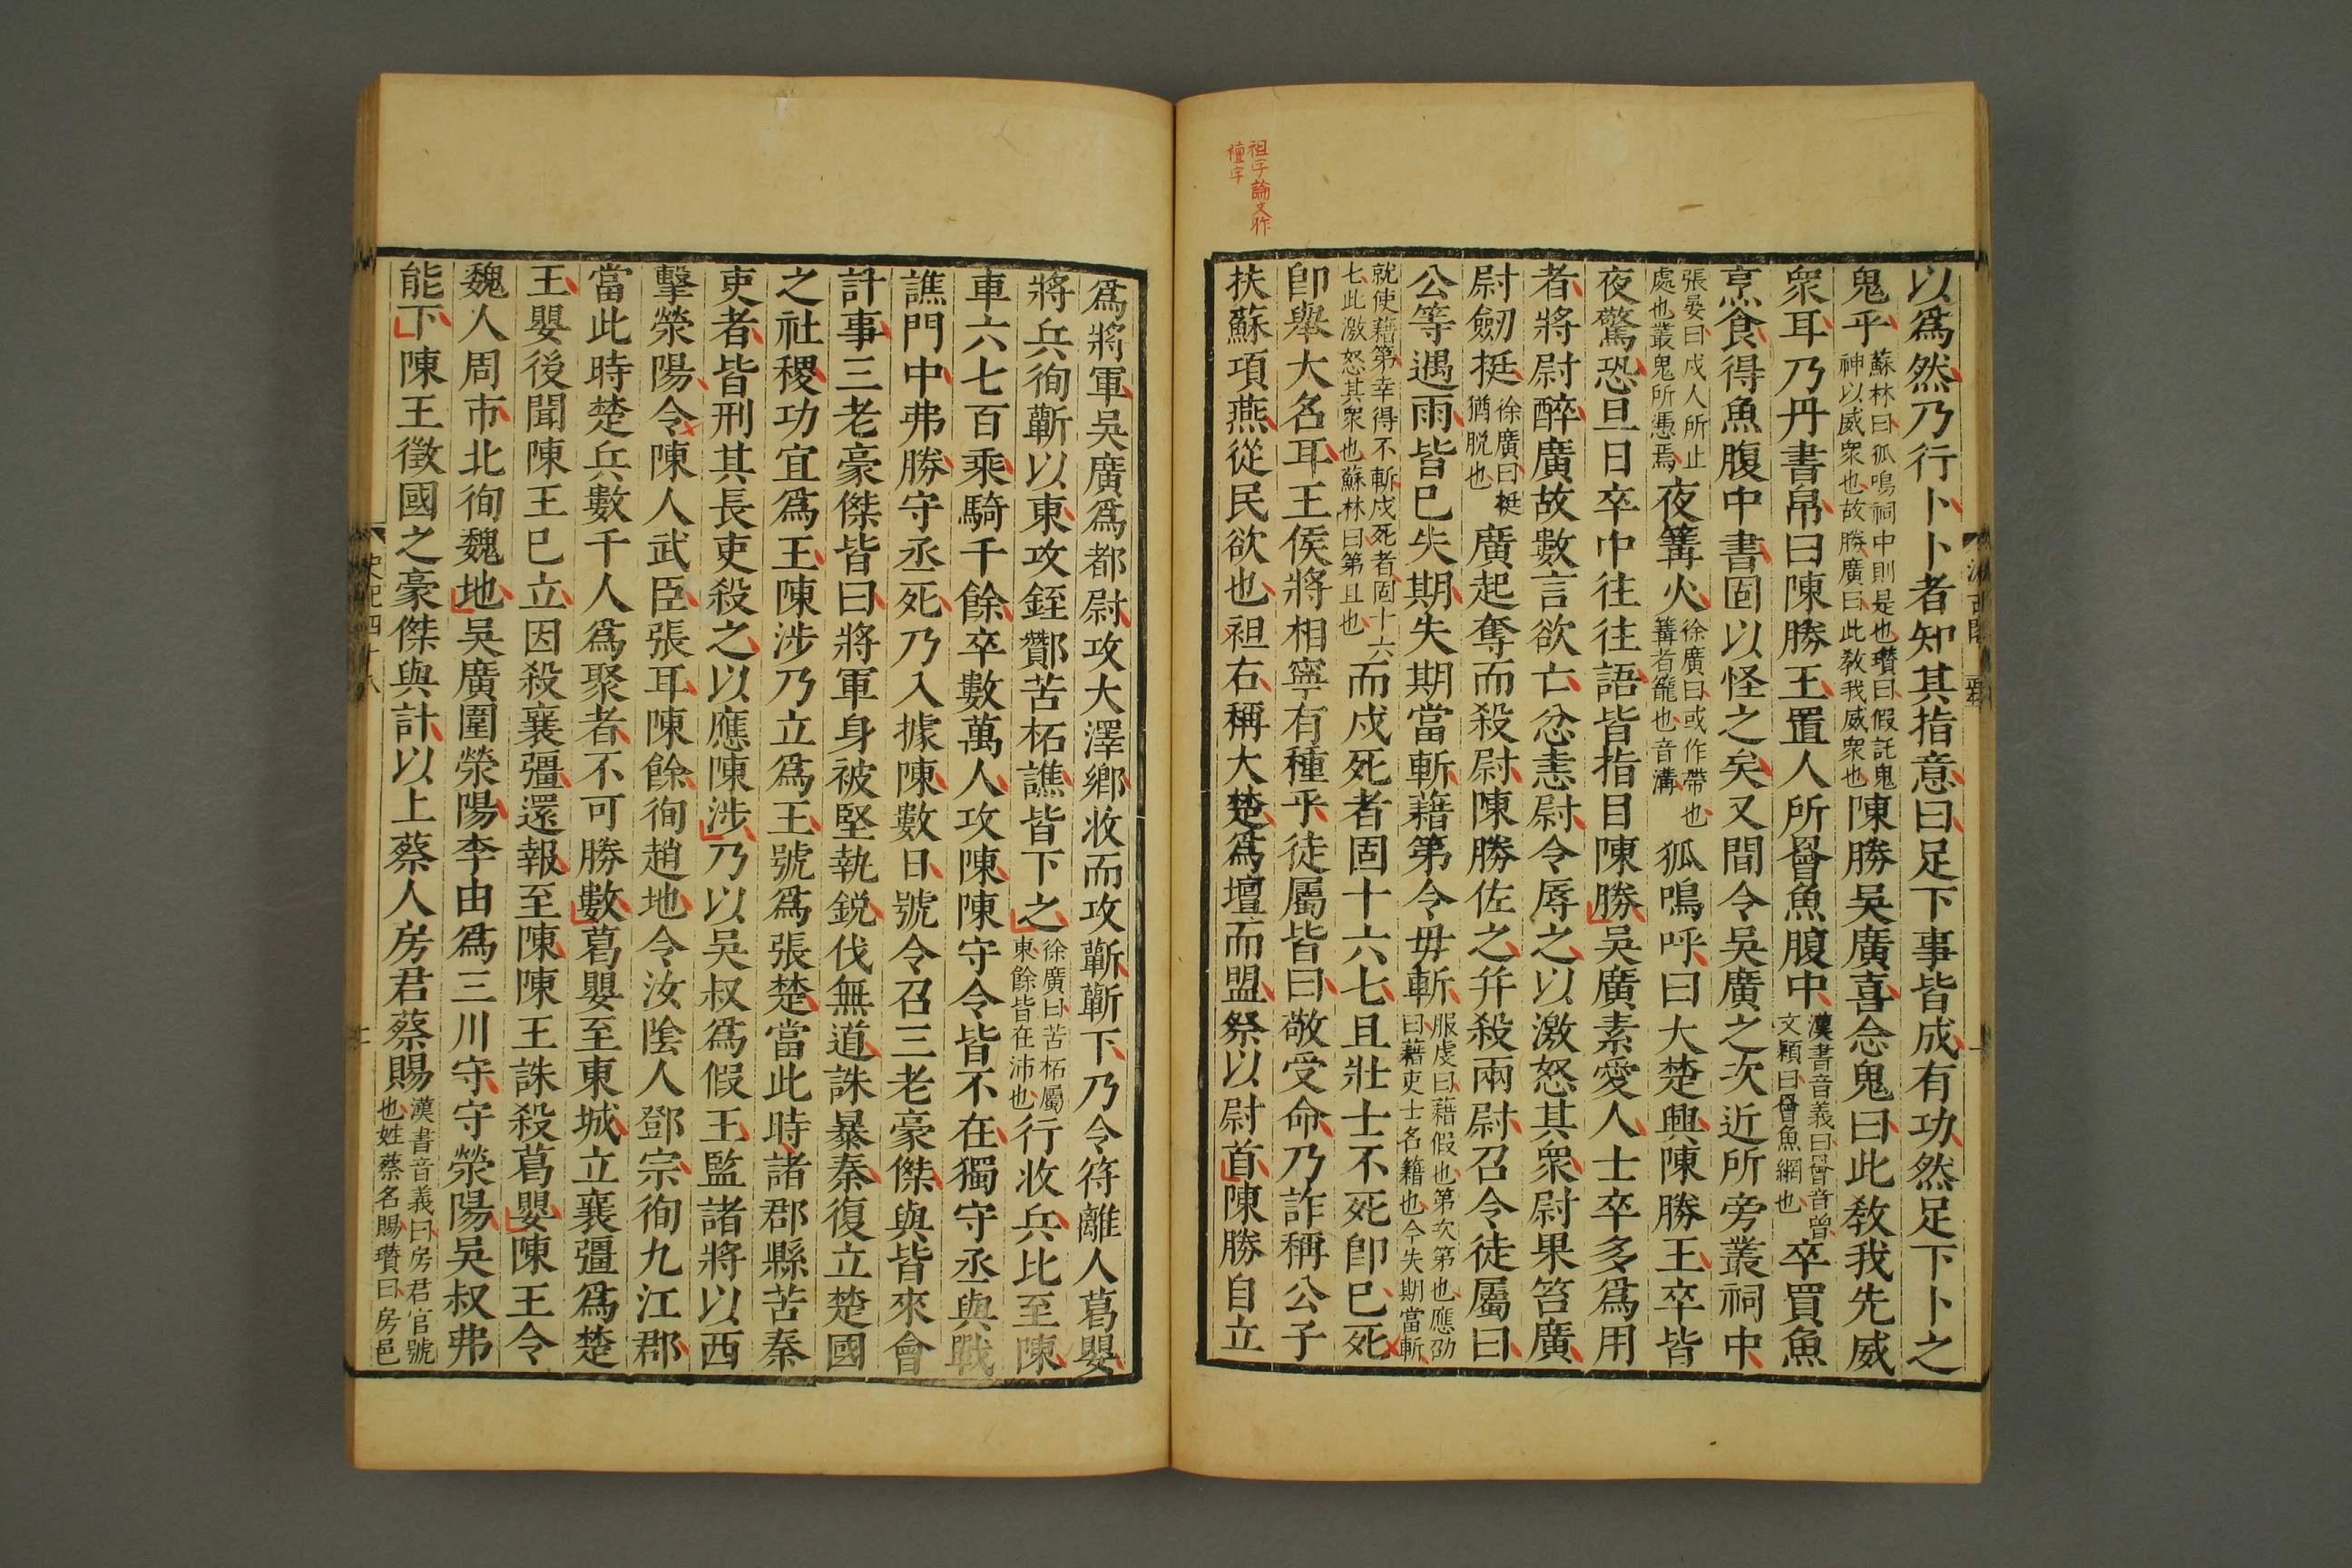 祖字論文作
襢字
以爲然乃行卜卜者知其指意曰足下事皆成有功然足下卜之
鬼乎蘇林曰狐鳴祠中則是也瓚曰假託鬼神以威衆也故勝廣曰此敎我威衆也陳勝吳廣喜念鬼曰此敎我先威
衆耳乃丹書帛曰陳勝王置人所罾魚腹中漢書音義曰罾音曾文穎曰罾魚網也卒買魚
烹食得魚腹中書固以怪之矣又間令吳廣之次近所旁叢祠中
張晏曰戍人所止處也叢鬼所憑焉夜篝火徐廣曰或作帶也篝者籠也音溝狐鳴呼曰大楚興陳勝王卒皆
夜驚恐旦日卒中往往語皆指目陳勝吳廣素愛人士卒多爲用
者將尉醉廣故數言欲亡忿恚尉令辱之以激怒其衆尉果笞廣
尉劒挺徐廣曰挺猶脫也廣起奪而殺尉陳勝佐之幷殺兩尉召令徒屬曰
公等遇雨皆已失期失期當斬藉第令毋斬服虔曰藉假也第次第也應劭曰藉吏士名籍也今失期當斬
就使藉第幸得不斬戍死者固十六七此激怒其衆也蘇林曰第且也而戍死者固十六七且壯士不死卽已死
卽舉大名耳王侯將相寧有種乎徒屬皆曰敬受命乃詐稱公子
扶蘇項燕從民欲也袒右稱大楚爲壇而盟祭以尉首陳勝自立
爲將軍吳廣爲都尉攻大澤鄕收而攻蘄蘄下乃令符離人葛嬰
將兵徇蘄以東攻銍酇苦柘譙皆下之徐廣曰苦柘屬東餘皆在沛也行收兵比至陳
車六七百乘騎千餘卒數萬人攻陳陳守令皆不在獨守丞與戰
譙門中弗勝守丞死乃入據陳數日號令召三老豪傑與皆來會
計事三老豪傑皆曰將軍身被堅執銳伐無道誅暴秦復立楚國
之社稷功宜爲王陳涉乃立爲王號爲張楚當此時諸郡縣苦秦
吏者皆刑其長吏殺之以應陳涉乃以吳叔爲假王監諸將以西
擊滎陽令陳人武臣張耳陳餘徇趙地令汝陰人鄧宗徇九江郡
當此時楚兵數千人爲聚者不可勝數葛嬰至東城立襄彊爲楚
王嬰後聞陳王已立因殺襄彊還報至陳陳王誅殺葛嬰陳王令
魏人周市北徇魏地吳廣圍滎陽李由爲三川守守滎陽吳叔弗
能下陳王徵國之豪傑與計以上蔡人房君蔡賜漢書音義曰房君官號也姓蔡名賜瓚曰房邑
史記四十八